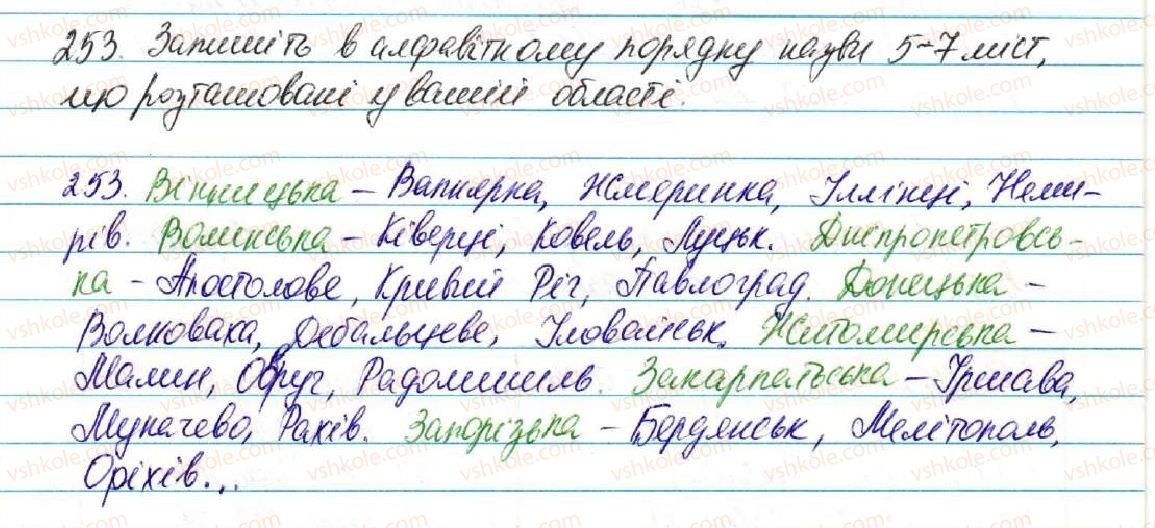 253. Запишіть в алфавітному порядку назви 5-7 міст,
що розташовані у вашій області.
253. Вінницька – Вапнярка, Жмеринка, Іллінці, Неми-
рів. Волинська – Ківерці, Ковель, Луцьк. Дніпропетровсь-
ка – Апостолове, Кривий Ріг, Павлоград. Донецька –
Волноваха, Дебальцеве, Іловайськ. Житомирська –
Малин, Овруч, Радомишль. Закарпатська – Іршава,
Мукачево, Рахів. Запорізька – Бердянськ, Мелітополь,
Оріхів...